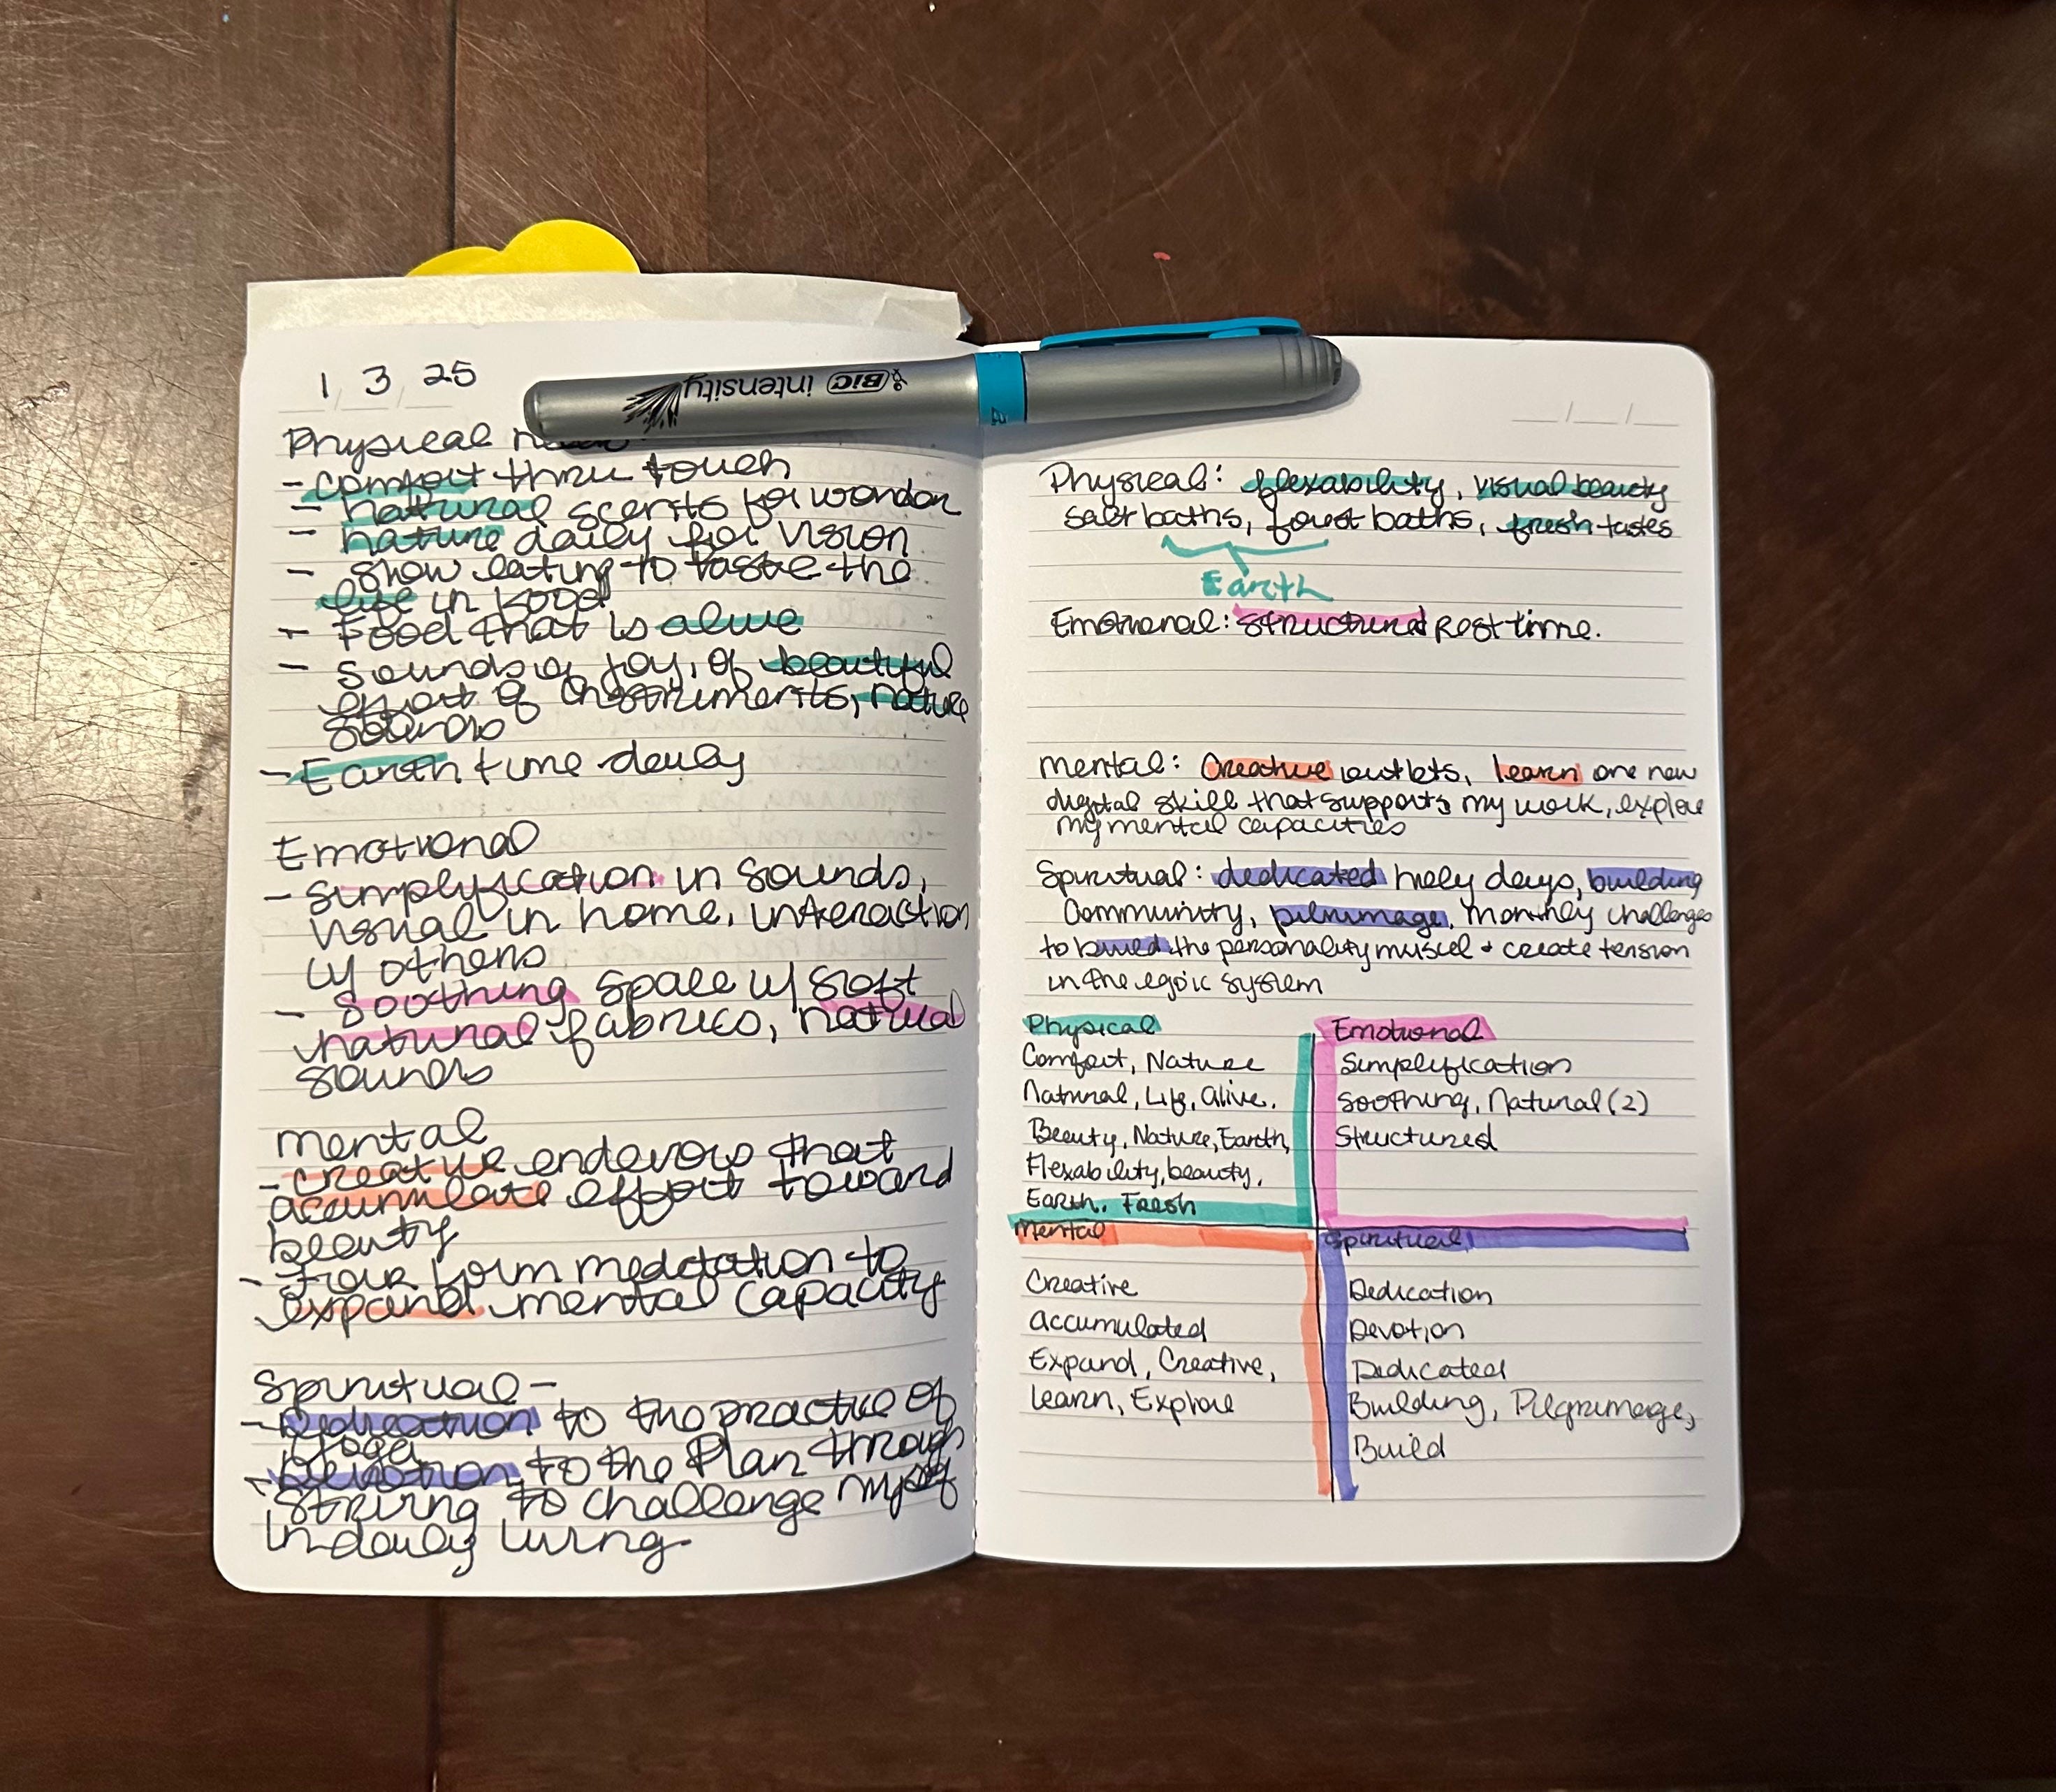 1 / 3 / 25
BIC intensity
Physical
- Comfort thru touch
- natural scents for wonder
- nature daily for vision
- slow eating to taste the
life in food
- Food that is alive
- Sounds of joy, of beautiful
effort of instruments, nature
sounds
- Earth time daily
Emotional
- Simplification in sounds,
visual in home, interaction
w/ others
- Soothing space w/ soft
natural fabrics, natural
sounds
mental
- creative endevors that
accumulate effort toward
beauty
- Four form meditation to
expand mental capacity
Spiritual -
- Dedication to the practice of
Yoga
- Devotion to the Plan through
striving to challenge myself
in daily living.
__/__/__
Physical: flexability, visual beauty
salt baths, forest baths, fresh tastes
Earth
Emotional: structured Rest time.
mental: Creative outlets, learn one new
digital skill that supports my work, explore
my mental capacities
Spiritual: dedicated holy days, building
Community, pilgrimage, monthly challenges
to build the personality muscel + create tension
in the egoic system
Physical
Comfort, Nature
Natural, Life, Alive,
Beauty, Nature, Earth,
Flexability, beauty,
Earth, Fresh
Emotional
Simplification
Soothing, Natural (2)
Structured
Mental
Creative
Accumulated
Expand, Creative,
Learn, Explore
Spiritual
Dedication
Devotion
Dedicated
Building, Pilgrimage,
Build